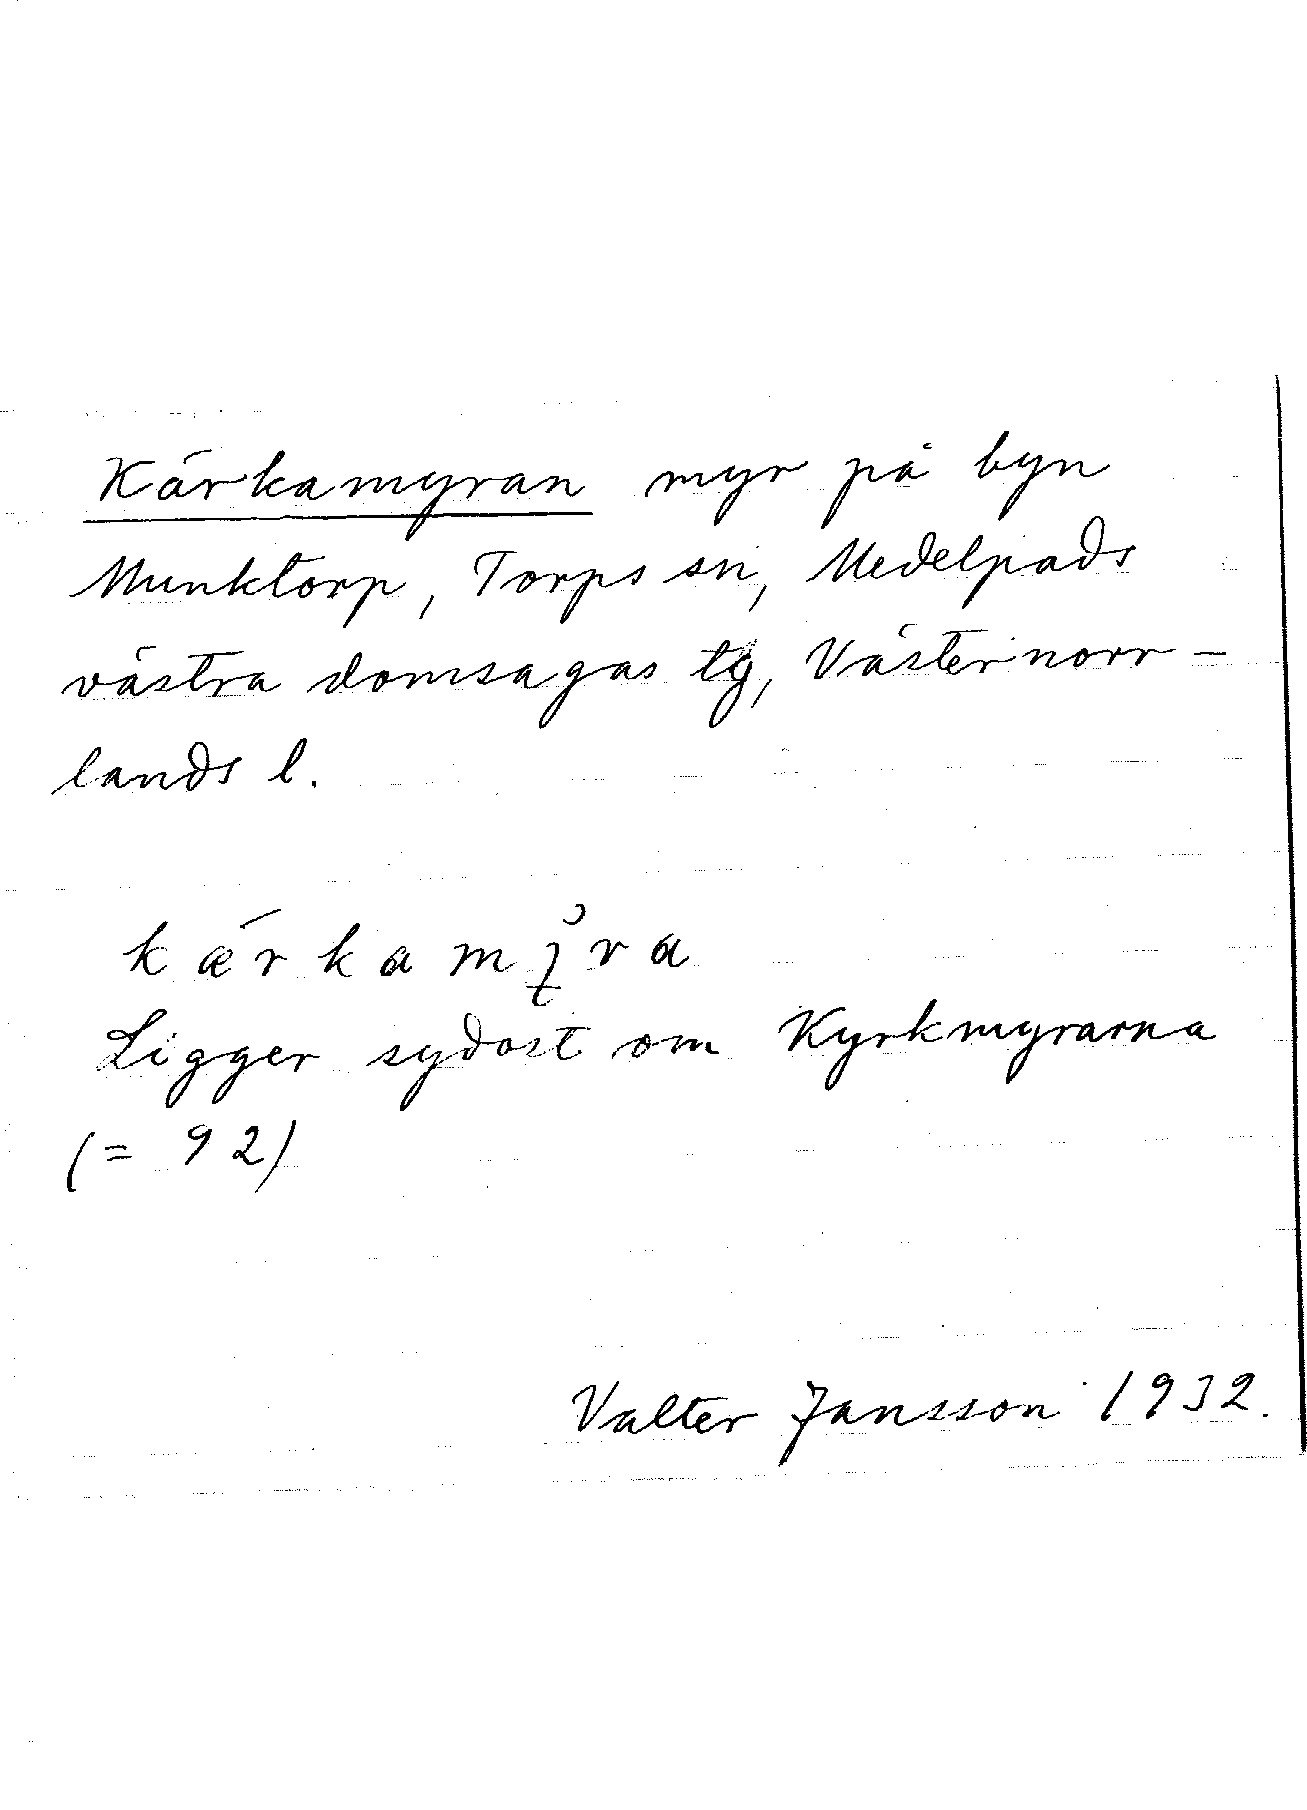 Kärkamyran myr på byn
Munktorp, Torps sn, Medelpads
västra domsagas tg, Västernorr-
lands l.
Ligger sydost om Kyrkmyrarna
(= 92)
Valter Jansson 1932.